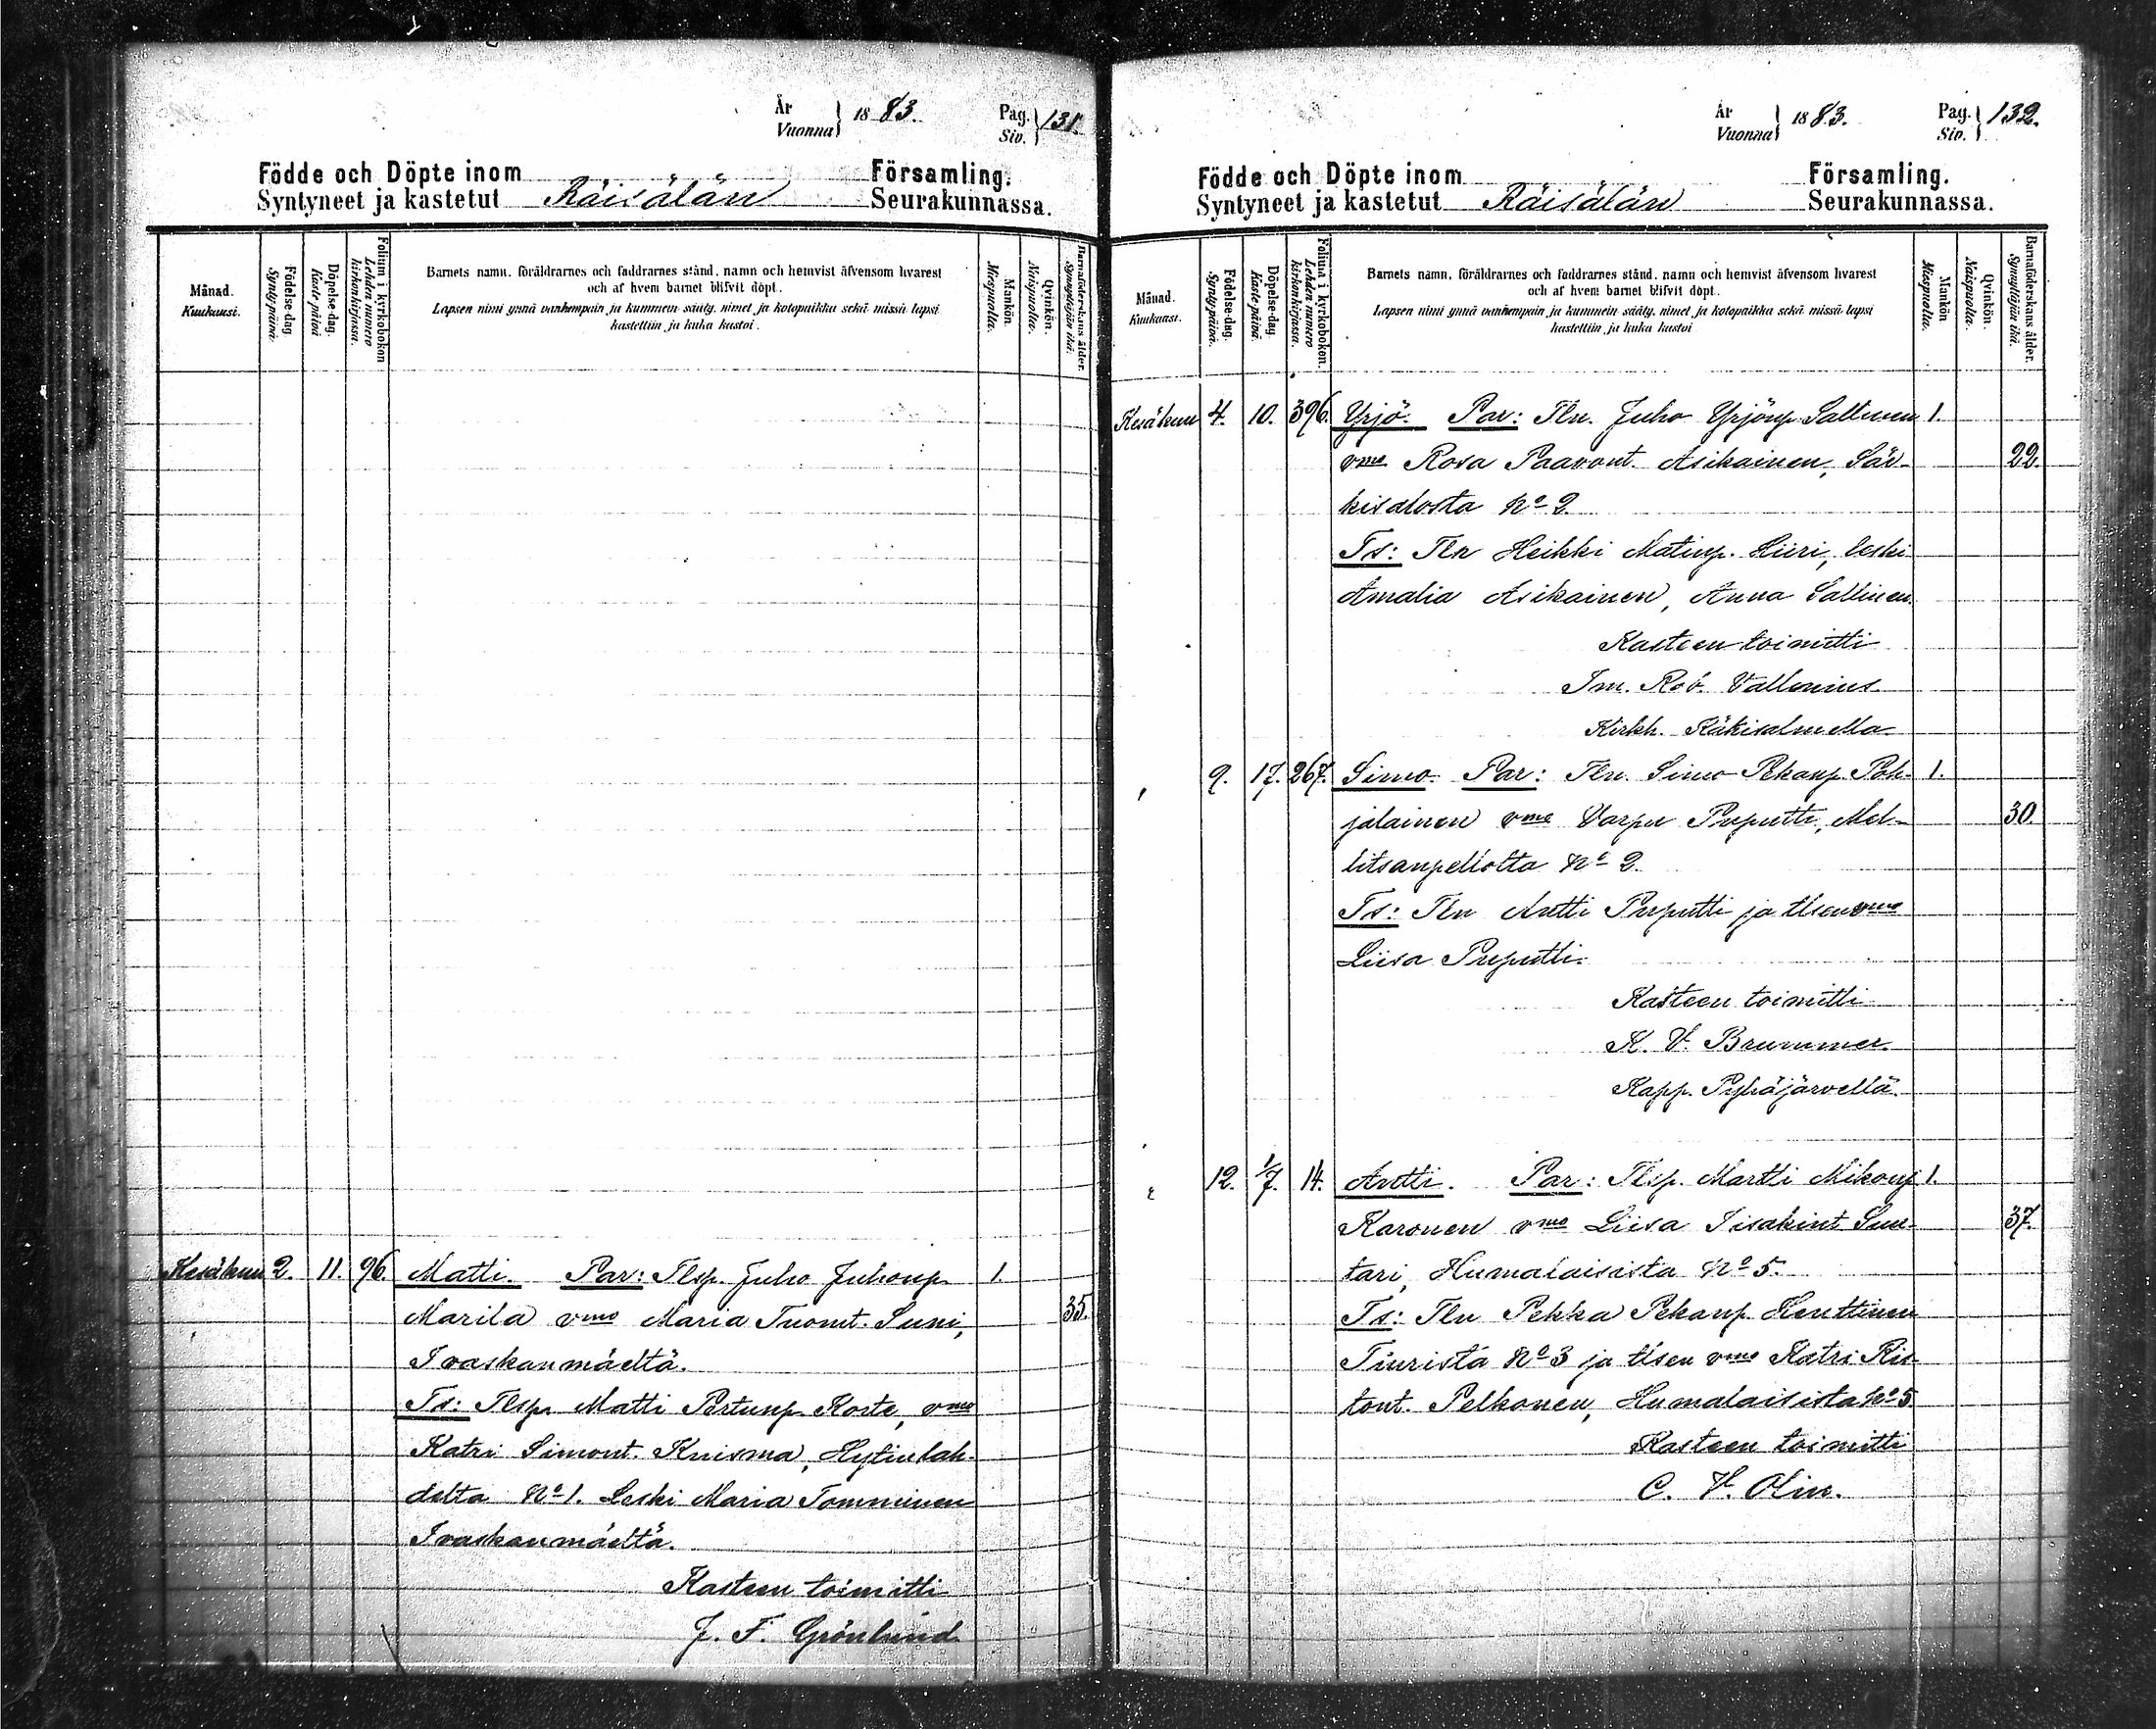 År
Vuonna } 1883. Pag. Siv. } 131.
Födde och Döpte inom Församling.
Syntyneet ja kastetut Räisälän Seurakunnassa.
Månad. Kuukausi.
Födelse-dag. Syntypäivä.
Döpelse-dag. Kaste-päivä
Folium i kyrkoboken Lehden numero kirkonkirjassa.
Barnets namn, föräldrarnes och faddrarnes stånd, namn och hemvist äfvensom hvarest
och af hvem barnet blifvit döpt.
Lapsen nimi ynnä vanhempain ja kummein sääty, nimet ja kotopaikka sekä missä lapsi
kastettiin ja kuka kastoi.
Mankön. Miespuolta.
Qvinkön. Naispuolta.
Barnaföderskans ålder. Synnyttäjän ikä.
Kesäkuu 2. 11. 96. Matti. Par: Tlsp. Juho Juhonp. 1.
Marila vmo Maria Tuomt. Suni, 35.
Ivaskanmäeltä.
Ts: Tlsp. Matti Pertunp. Korte, vmo
Katri Simont. Kuisma, Hytinlah-
delta No 1. Leski Maria Tomminen
Ivaskanmäeltä.
Kasteen toimitti
J. F. Grönlund
År
Vuonna } 1883. Pag. Siv. } 132.
Födde och Döpte inom Församling.
Syntyneet ja kastetut Räisälän Seurakunnassa.
Månad. Kuukausi.
Födelse-dag. Syntypäivä.
Döpelse-dag. Kaste-päivä.
Folium i kyrkoboken. Lehden numero kirkonkirjassa.
Barnets namn, föräldrarnes och faddrarnes stånd, namn och hemvist äfvensom hvarest
och af hvem barnet blifvit döpt.
Lapsen nimi ynnä vanhempain ja kummein sääty, nimet ja kotopaikka sekä missä lapsi
kastettiin ja kuka kastoi
Mankön Miespuolta.
Qvinkön. Naispuolta.
Barnaföderskans ålder. Synnyttäjän ikä.
Kesäkuu 4. 10. 396. Yrjö. Par: Tln. Juho Yrjönp. Sallinen 1.
vmo Rosa Paavont. Asikainen, Sär- 22.
kisalosta No 2.
Ts: Tln Heikki Matinp. Hiiri, leski
Amalia Asikainen, Anna Sallinen.
Kasteen toimitti
Im. Rob. Vallenius
Kirkh. Käkisalmella
9. 17. 267. Simo. Par: Tln. Simo Pekanp. Poh- 1.
jalainen vmo Varpu Puputti, Mel- 30.
litsanpellolta No 2.
Ts: Tln Antti Puputti ja tlsen vmo
Liisa Puputti.
Kasteen toimitti
K. V. Brummer.
Kapp. Pyhäjärvellä.
12. 1/7. 14. Antti. Par: Tlsp. Martti Mikonp 1.
Karonen vmo Liisa Iisakint Sun- 37.
tari, Humalaisista No 5.
Ts: Tln Pekka Pekanp. Henttinen
Tiuristä No 3 ja tlsen vmo Katri Ris-
tont. Pelkonen, Humalaisista No 5
Kasteen toimitti
C. V. Olin.